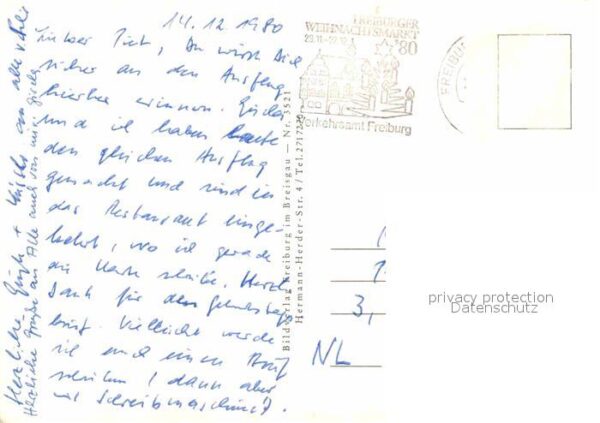 14.12.1980
Lieber Piet, Du wirst Dich
sicher an den Ausflug
hierher erinnern. Gisela
und ich haben heute
den gleichen Ausflug
gemacht und sind in
das Restaurant einge-
kehrt, wo ich gerade
die Karte schreibe. Herzl.
Dank für den Geburtstags-
brief. Vielleicht werde
ich euch einen Brief
schreiben, dann aber
mit Schreibmaschine!
Herzliche Grüße + Küsse an alle v.
Herzliche Grüße an Alle auch von mir Gisela
FREIBURGER
WEIHNACHTSMARKT
'80
Verkehrsamt Freiburg
FREIBU
Bildverlag Freiburg im Breisgau — Nr. 3521
Hermann-Herder-Str. 4 / Tel. 2717
3,
NL
privacy protection
Datenschutz